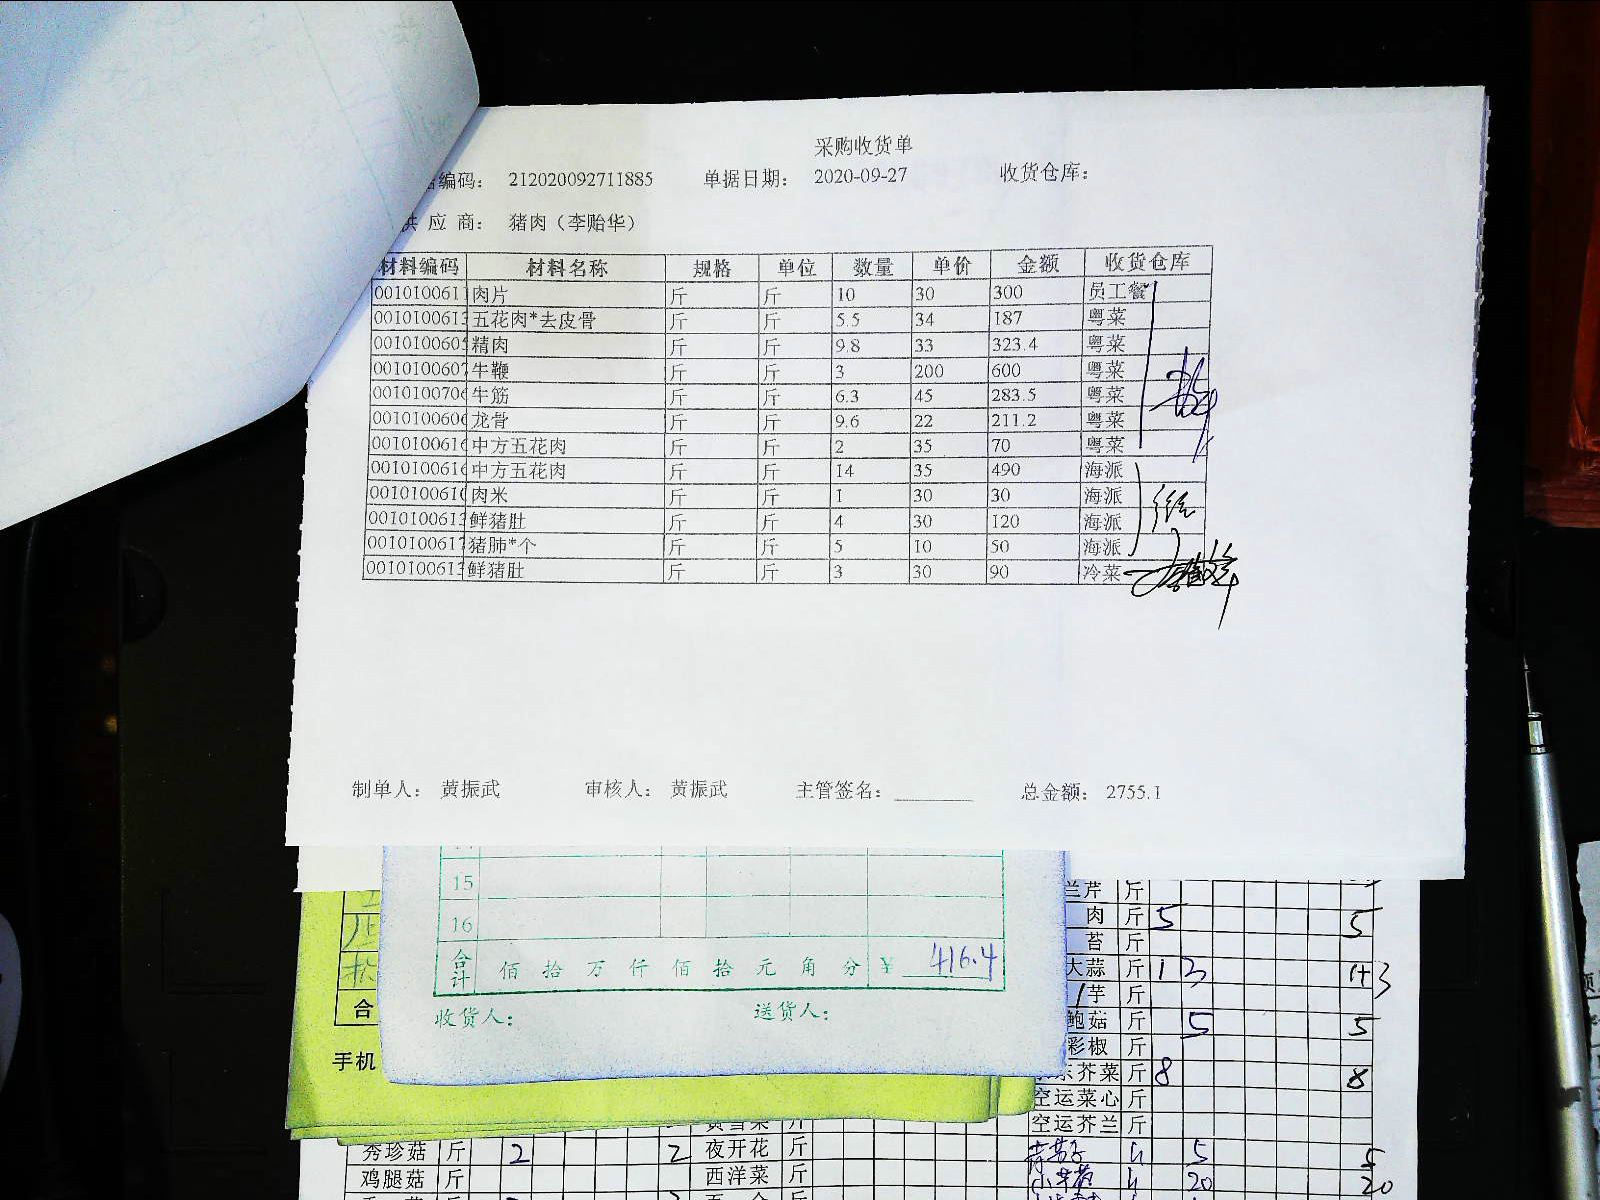 采购收货单
编码： 212020092711885 单据日期： 2020-09-27 收货仓库：
应 商： 猪肉（李贻华）
材料编码 材料名称 规格 单位 数量 单价 金额 收货仓库
0010100611 肉片 斤 斤 10 30 300 员工餐
001010061 五花肉*去皮骨 斤 斤 5.5 34 187 粤菜
001010060 精肉 斤 斤 9.8 33 323.4 粤菜
001010060 牛鞭 斤 斤 3 200 600 粤菜
001010070 牛筋 斤 斤 6.3 45 283.5 粤菜
001010060 龙骨 斤 斤 9.6 22 211.2 粤菜
001010061 中方五花肉 斤 斤 2 35 70 粤菜
001010061 中方五花肉 斤 斤 14 35 490 海派
001010061 肉米 斤 斤 1 30 30 海派
001010061 鲜猪肚 斤 斤 4 30 120 海派
001010061 猪肺*个 斤 斤 5 10 50 海派
001010061 鲜猪肚 斤 斤 3 30 90 冷菜
制单人： 黄振武 审核人： 黄振武 主管签名： 总金额： 2755.1
15
16
合计 佰 拾 万 仟 佰 拾 元 角 分 ¥ 416.4
收货人： 送货人：
合
手机
兰芹 斤
肉 斤 5 5
苔 斤
大蒜 斤 1 3 1+3
芋 斤
鲍菇 斤 5 5
彩椒 斤
芥菜 斤 8 8
空运菜心 斤
空运芥兰 斤
秀珍菇 斤 2 2 夜开花 斤 5 5
鸡腿菇 斤 西洋菜 斤 20 20